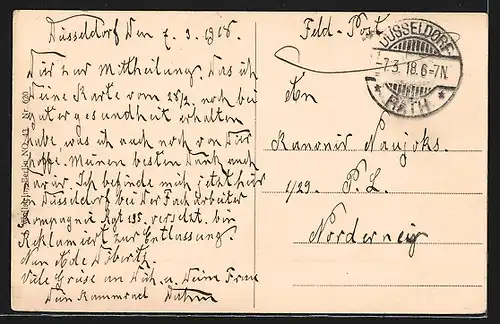 Düsseldorf Den 7. 3. 1918.
Dir zur Mittheilung Das ich
Deine Karte vom 28/2. noch bei
guter gesundheit erhalten
habe, was ich auch noch von Dir
hoffe. Meinen besten Dank auch
Dafür. Ich befinde mich jetzt hier
in Düsseldorf bei der Facharbeiter
Kompagnie Rgt 135. versetzt. bin
Reklamiert zur Entlassung.
Nun
Viele Grüse an Dich u. Deine Frau
Dein Kammrad
Feld-Post
DÜSSELDORF
-7.3.18.6-7N.
* RATH *
An
Kanonir Naujoks.
1/29. P. L.
Norderney